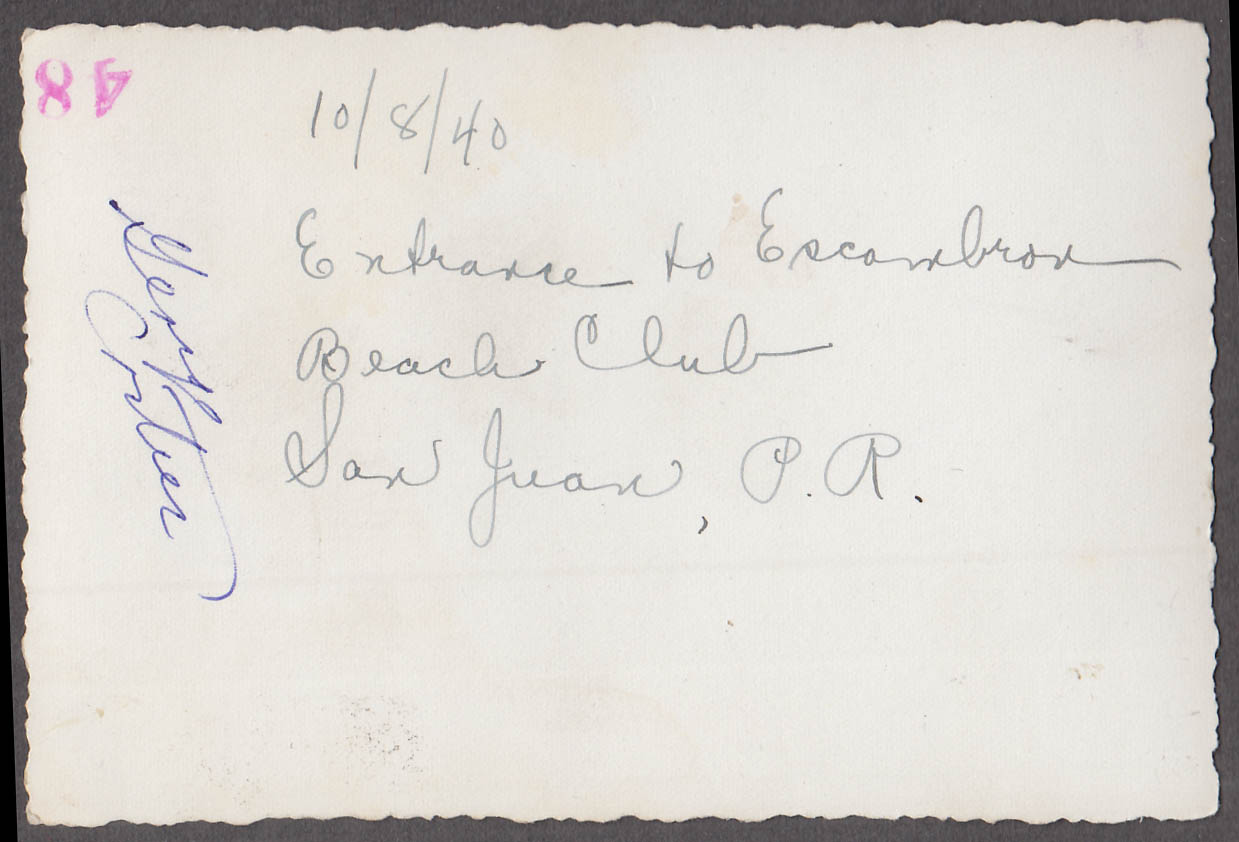 48
10/8/40
Entrance to Escambron
Beach Club
San Juan, P.R.